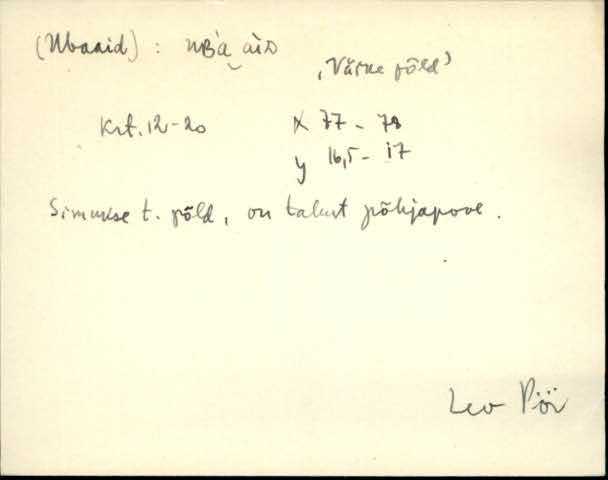 (Ubaaid) : uʙ̀a͜ aìᴅ
‚Väike põld’
Krt. 12-20 x 77 - 78
y 16,5 - 17
Simukse t. põld, on talust põhjapool.
Leo